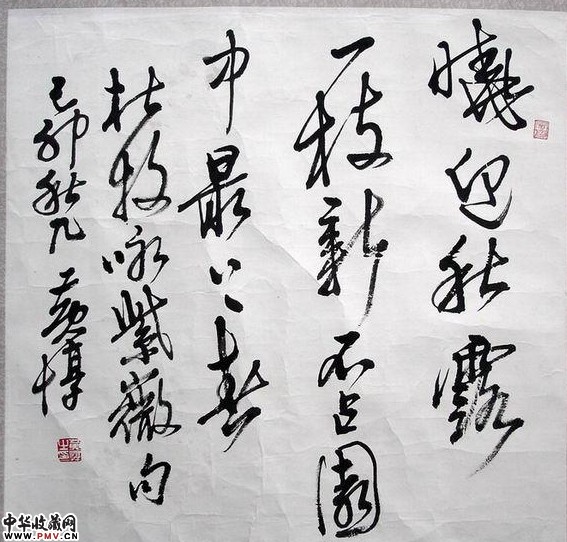 曉迎秋露
一枝新不占園
中最上春
杜牧咏紫薇句
己卯秋 黄惇
中华收藏网
www.PMV.CN